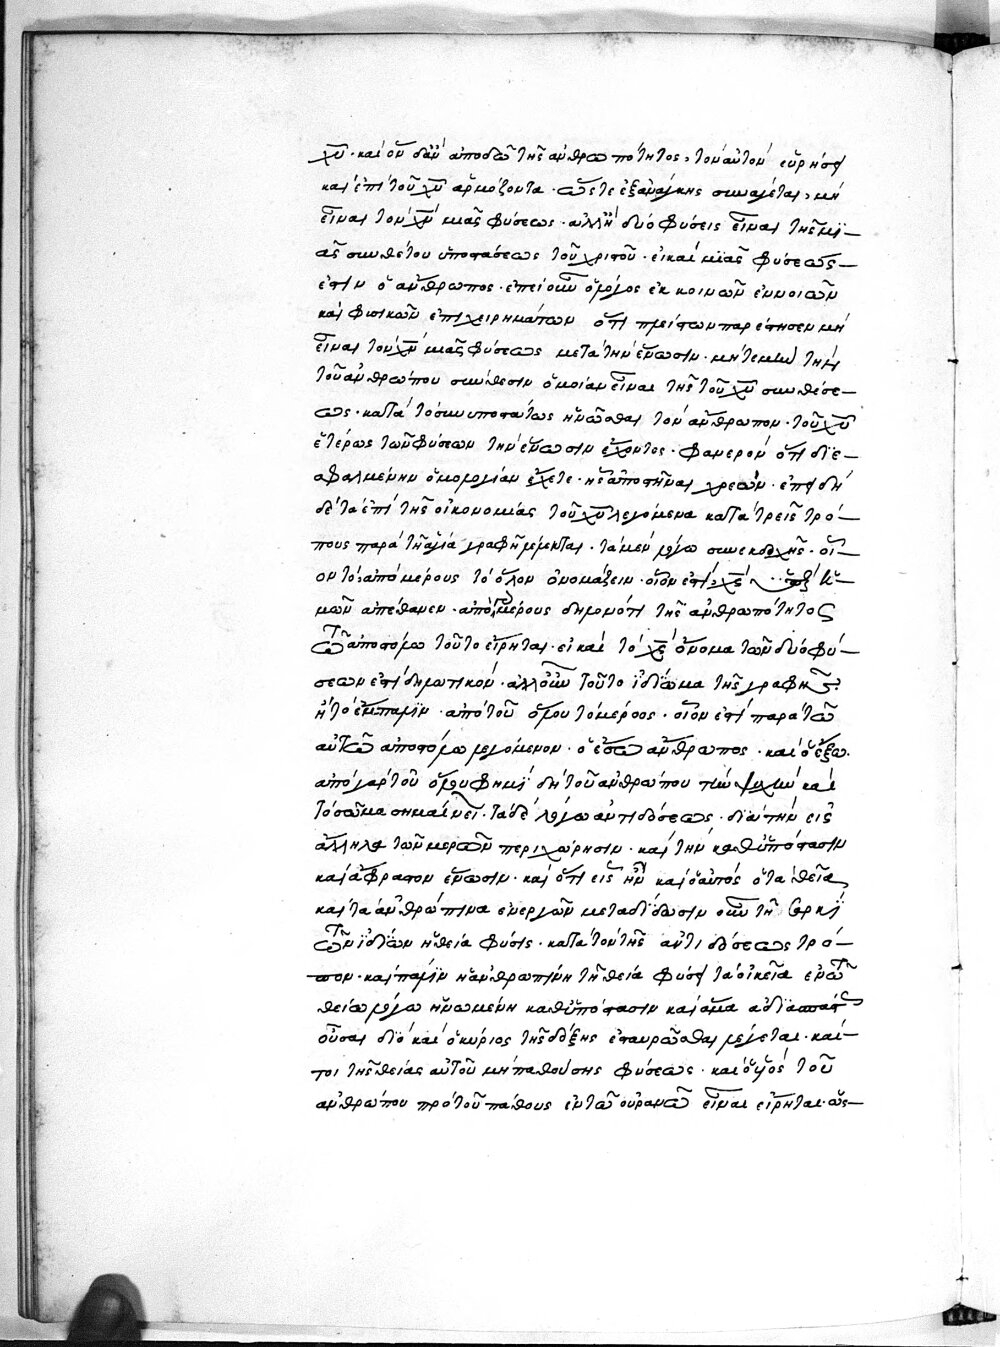 χῦ· καὶ οὐ δ' ἂν ἀποδῶ τῆς ἀνθρωπότητος, τὸν αὐτὸν εὑρήσει
καὶ ἐπὶ τοῦ χῦ ἁρμόζοντα· ὥστε ἐξανάγκης συνάγεται, μὴ
εἶναι τὸν χν μιᾶς φύσεως· ἀλλ' ἢ δύο φύσεις εἶναι τῆς μϊ-
ᾶς συνθέτου ὑποστάσεως τοῦ χριστοῦ· εἰ καὶ μιᾶς φύσεως
ἐστὶν ὁ ἄνθρωπος· ἐπεὶ οὖν ὁ λόγος ἐκ κοινῶν ἐννοιῶν
καὶ φυσικῶν ἐπιχειρημάτων ὅτι παρέστησεν μὴ
εἶναι τὸν χν μιᾶς φύσεως μετὰ τὴν ἕνωσιν· μήτε μὴν τὴν
τοῦ ἀνθρώπου σύνθεσιν ὁμοίαν εἶναι τῆς τοῦ χῦ συνθέσε-
ως· κατὰ τὸ συνυποστάτως ἡνῶσθαι τὸν ἄνθρωπον· τοῦ χῦ
ἑτέρως τῶν φύσεων τὴν ἕνωσιν ἔχοντος· φανερὸν ὅτι διε-
σφαλμένην ὁμολογίαν ἔχετε· ἧς ἀποστῆναι χρεών· ἐπειδὴ
δὲ τὰ ἐπὶ τῆς οἰκονομίας τοῦ χῦ λεγόμενα κατὰ τρεῖς τρό-
πους παρὰ τῇ ἁγία γραφῇ λέλεκται· τὰ μὲν λόγω συνεκδοχῆς· οἷ-
ον τὸ ἀπὸ μέρους τὸ ὅλον ὀνομάζειν· οἷον ἐπὶ χς
μῶν ἀπέθανεν· ἀπὸ μέρους δηλονότι τῆς ἀνθρωπότητος
τῶ ἀποστόλω τοῦτο εἴρηται· εἰ καὶ τὸ χς ὄνομα τῶν δύο φύ-
σεων ἐστὶ δηλωτικόν· ἀλλ' οὖν τοῦτο ἰδίωμα τῆς γραφῆς
ἢ τὸ ἔμπαλιν· ἀπὸ τοῦ ὅλου τὸ μέρος· οἷον ἐστὶ παρὰ τῶ
αὐτῶ ἀποστόλω λεγόμενον· ὁ ἔσω ἄνθρωπος· καὶ ὁ ἔξω.
ἀπὸ γὰρ τοῦ ὅλου φημῒ δὴ τοῦ ἀνθρώπου τὴν ψυχὴν καὶ
τὸ σῶμα σημαίνει· τὰ δὲ λόγω ἀντιδόσεως· διὰ τὴν εἰς
ἄλληλα τῶν μερῶν περιχώρησιν· καὶ τὴν καθ' ὑπόστασιν
καὶ ἄφραστον ἕνωσιν· καὶ ὅτι εἷς ἦν καὶ ὁ αὐτὸς ὁ τὰ θεῖα
καὶ τὰ ἀνθρώπινα ἐνεργῶν μεταδίδωσιν οὖν τῇ σαρκῒ
τῶν ἰδίων ἡ θεία φύσις· κατὰ τὸν τῆς ἀντιδόσεως τρό-
πον· καὶ πάλιν ἡ ἀνθρωπίνη τῇ θεία φύσει τὰ οἰκεῖα ἐν τῶ
θείω λόγω ἡνωμένη καθ' ὑπόστασιν καὶ ἅμα
οὖσαι διὸ καὶ ὁ κύριος τῆς δόξης ἐσταυρῶσθαι λέγεται· καί-
τοι τῆς θείας αὐτοῦ μὴ παθούσης φύσεως· καὶ ὁ υἱὸς τοῦ
ἀνθρώπου πρὸ τοῦ πάθους ἐν τῶ οὐρανῶ εἶναι εἴρηται· ὥς-